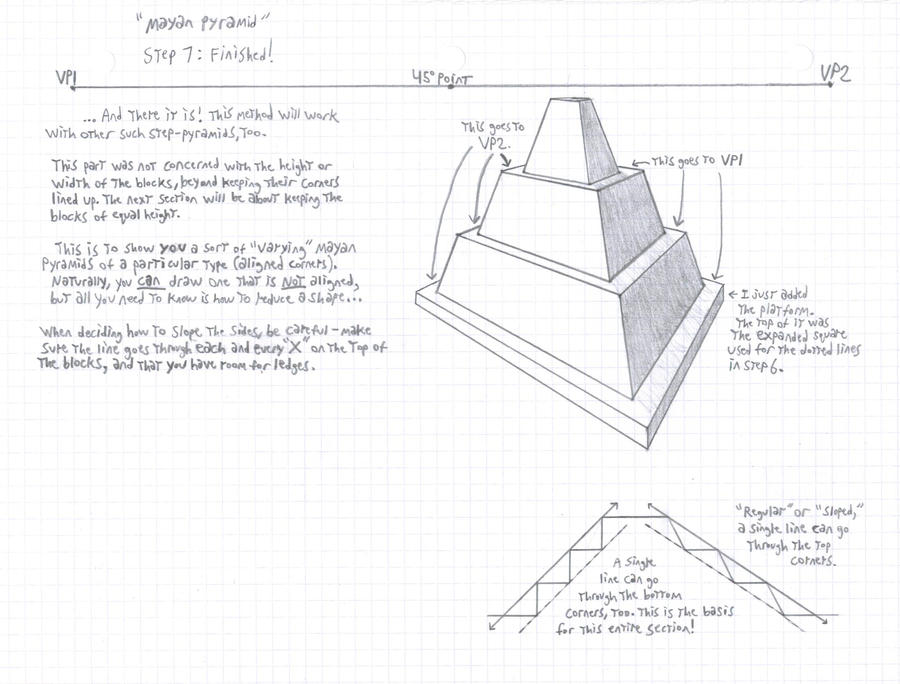 "Mayan Pyramid"
Step 7: Finished!
VP1
45° Point
VP2
... And there it is! This method will work
with other such step-pyramids, too.
This part was not concerned with the height or
width of the blocks, beyond keeping their corners
lined up. The next section will be about keeping the
blocks of equal height.
This is to show you a sort of "varying" Mayan
Pyramids of a particular type (aligned corners).
Naturally, you can draw one that is not aligned,
but all you need to know is how to reduce a shape...
When deciding how to slope the sides, be careful - make
sure the line goes through each and every "X" on the top of
the blocks, and that you have room for ledges.
This goes to
VP2.
This goes to VP1
← I just added
the platform.
The top of it was
the expanded square
used for the dotted lines
in step 6.
"Regular" or "Sloped,"
a single line can go
through the top
corners.
A single
line can go
through the bottom
corners, too. This is the basis
for this entire section!